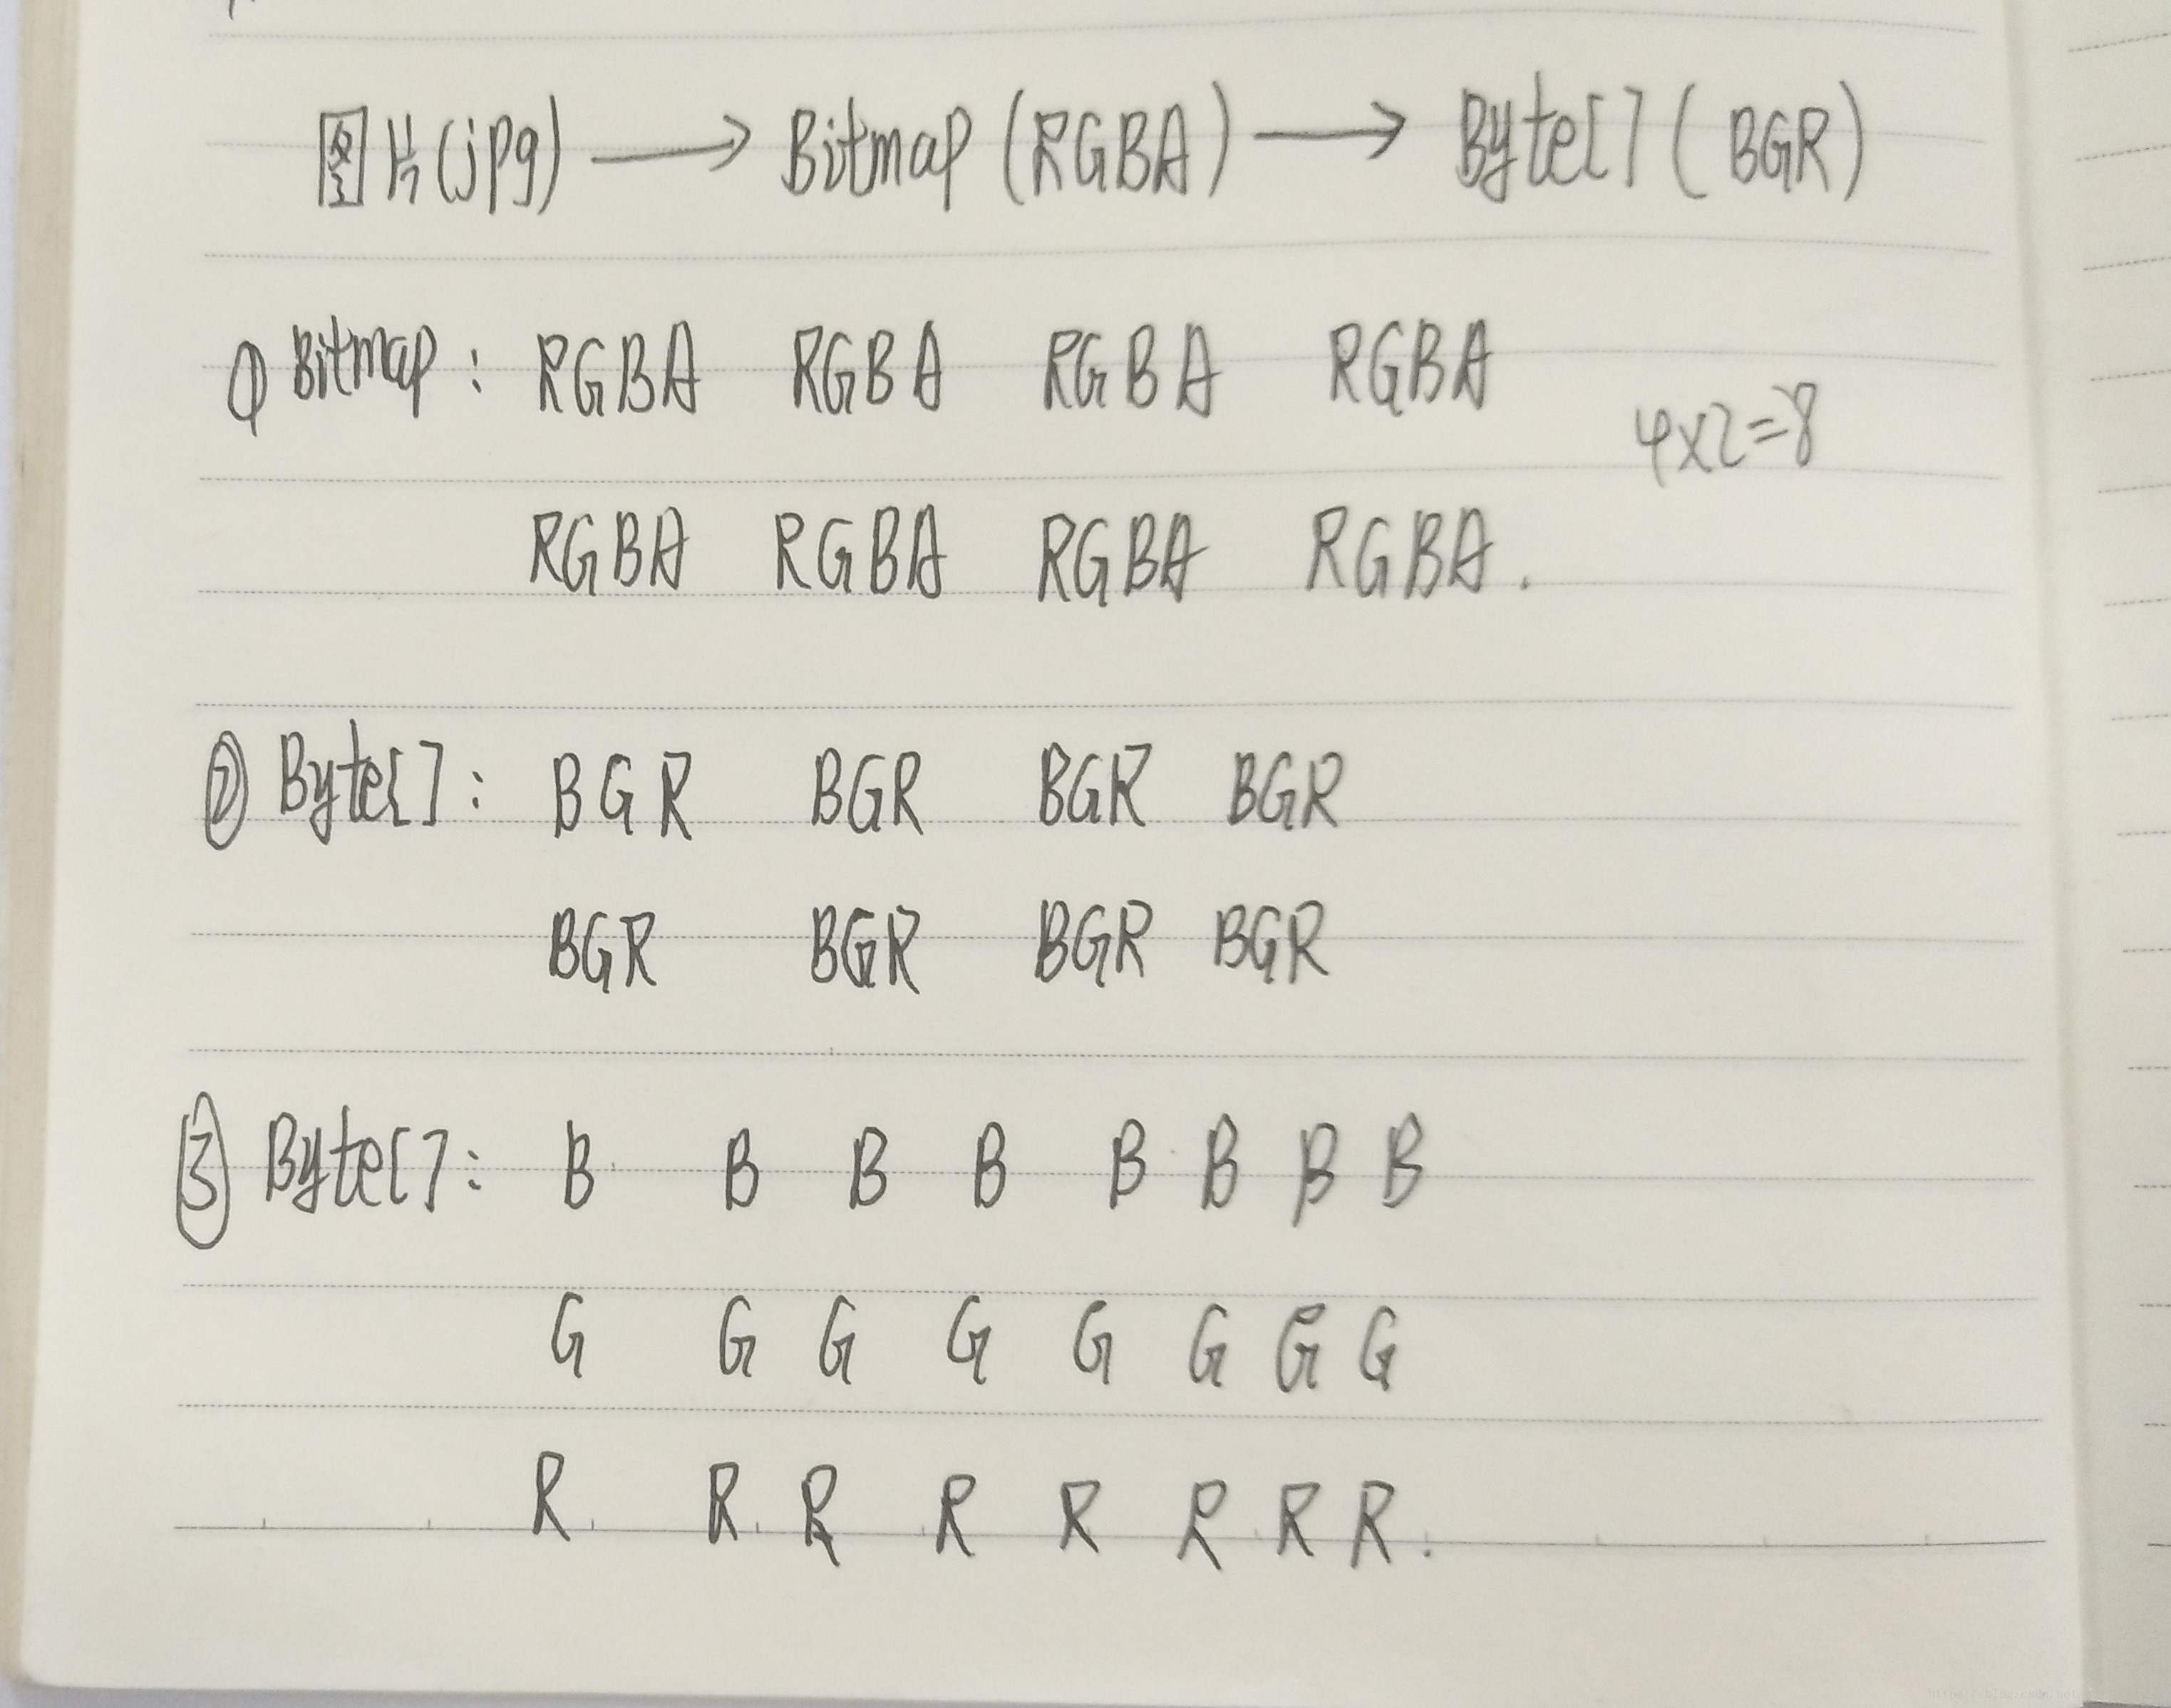 图片(jpg) → Bitmap (RGBA) → Byte[] (BGR)
① Bitmap: RGBA RGBA RGBA RGBA
4×2=8
RGBA RGBA RGBA RGBA.
② Byte[]: BGR BGR BGR BGR
BGR BGR BGR BGR
③ Byte[]: B B B B B B B B
G G G G G G G G
R R R R R R R R.